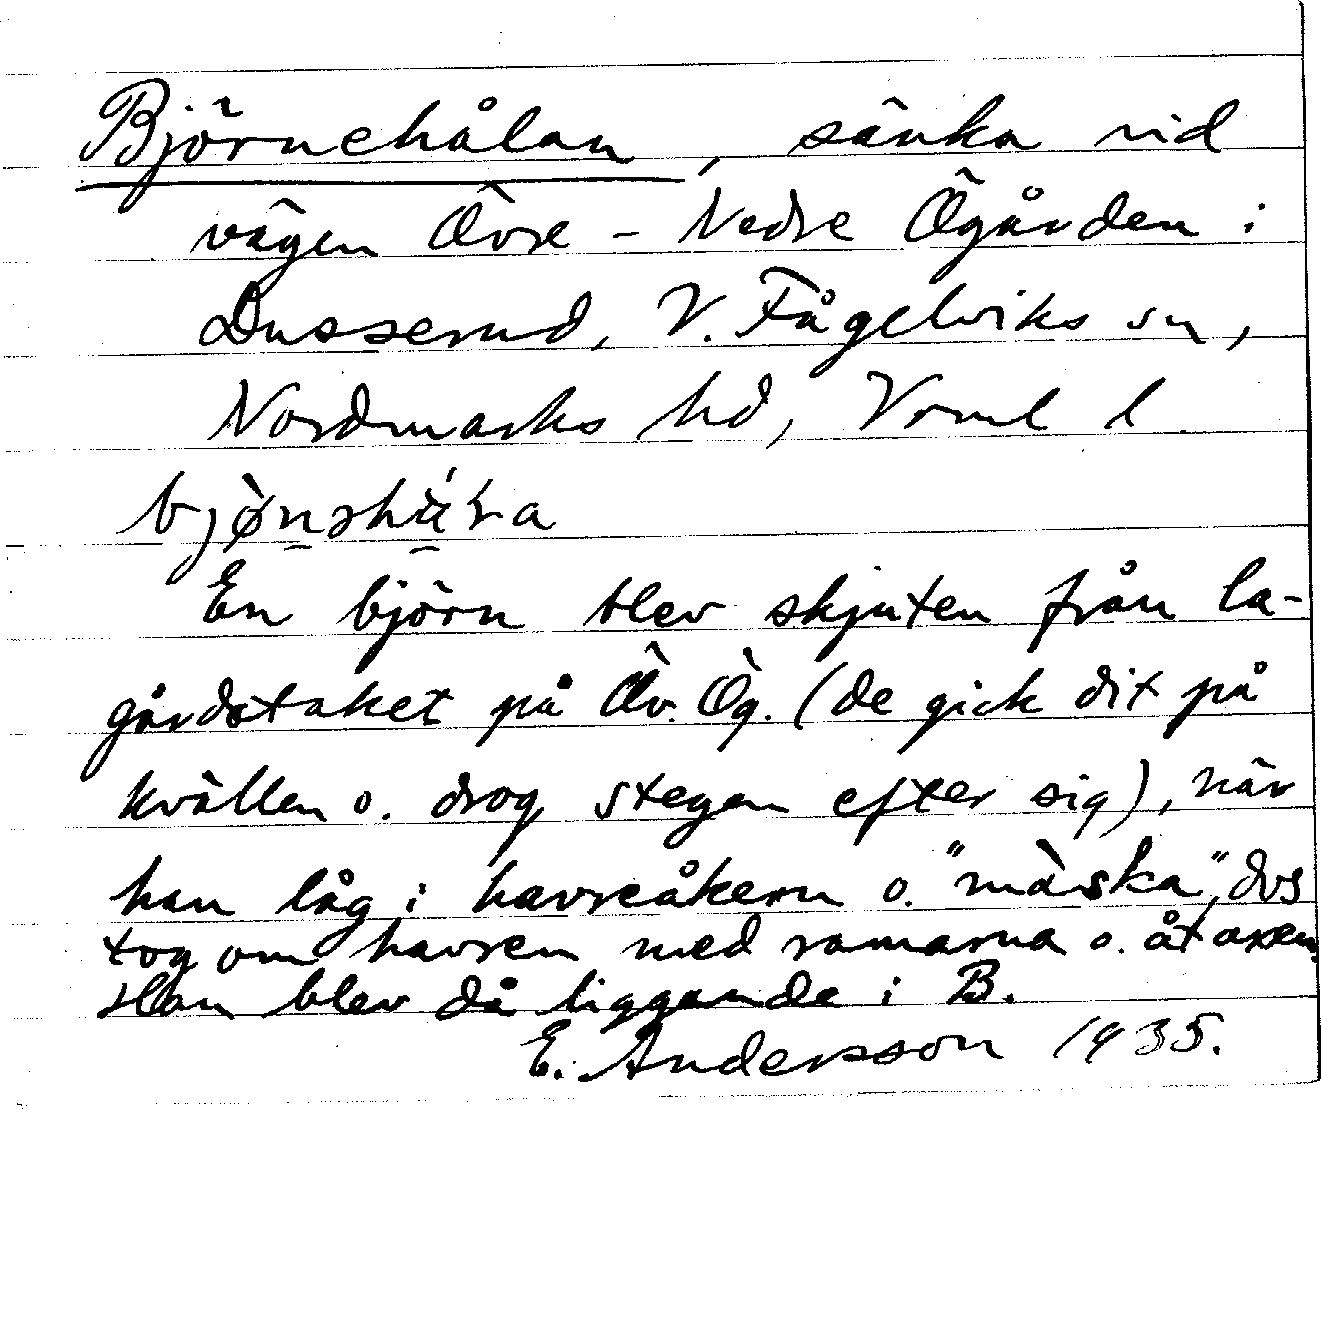 Björnehålan, sänka vid
vägen Övre - Nedre Ögården i
Dusserud, V. Fågelviks sn,
Nordmarks hd, Vrml l.
En björn blev skjuten från la-
gårdstaket på Öv. Ög. (de gick dit på
kvällen o. drog stegen efter sig), när
han låg i havreåkern o. "màska", dvs
tog om havren med ramarna o. åt axen.
Han blev då liggande i B.
E. Andersson 1935.